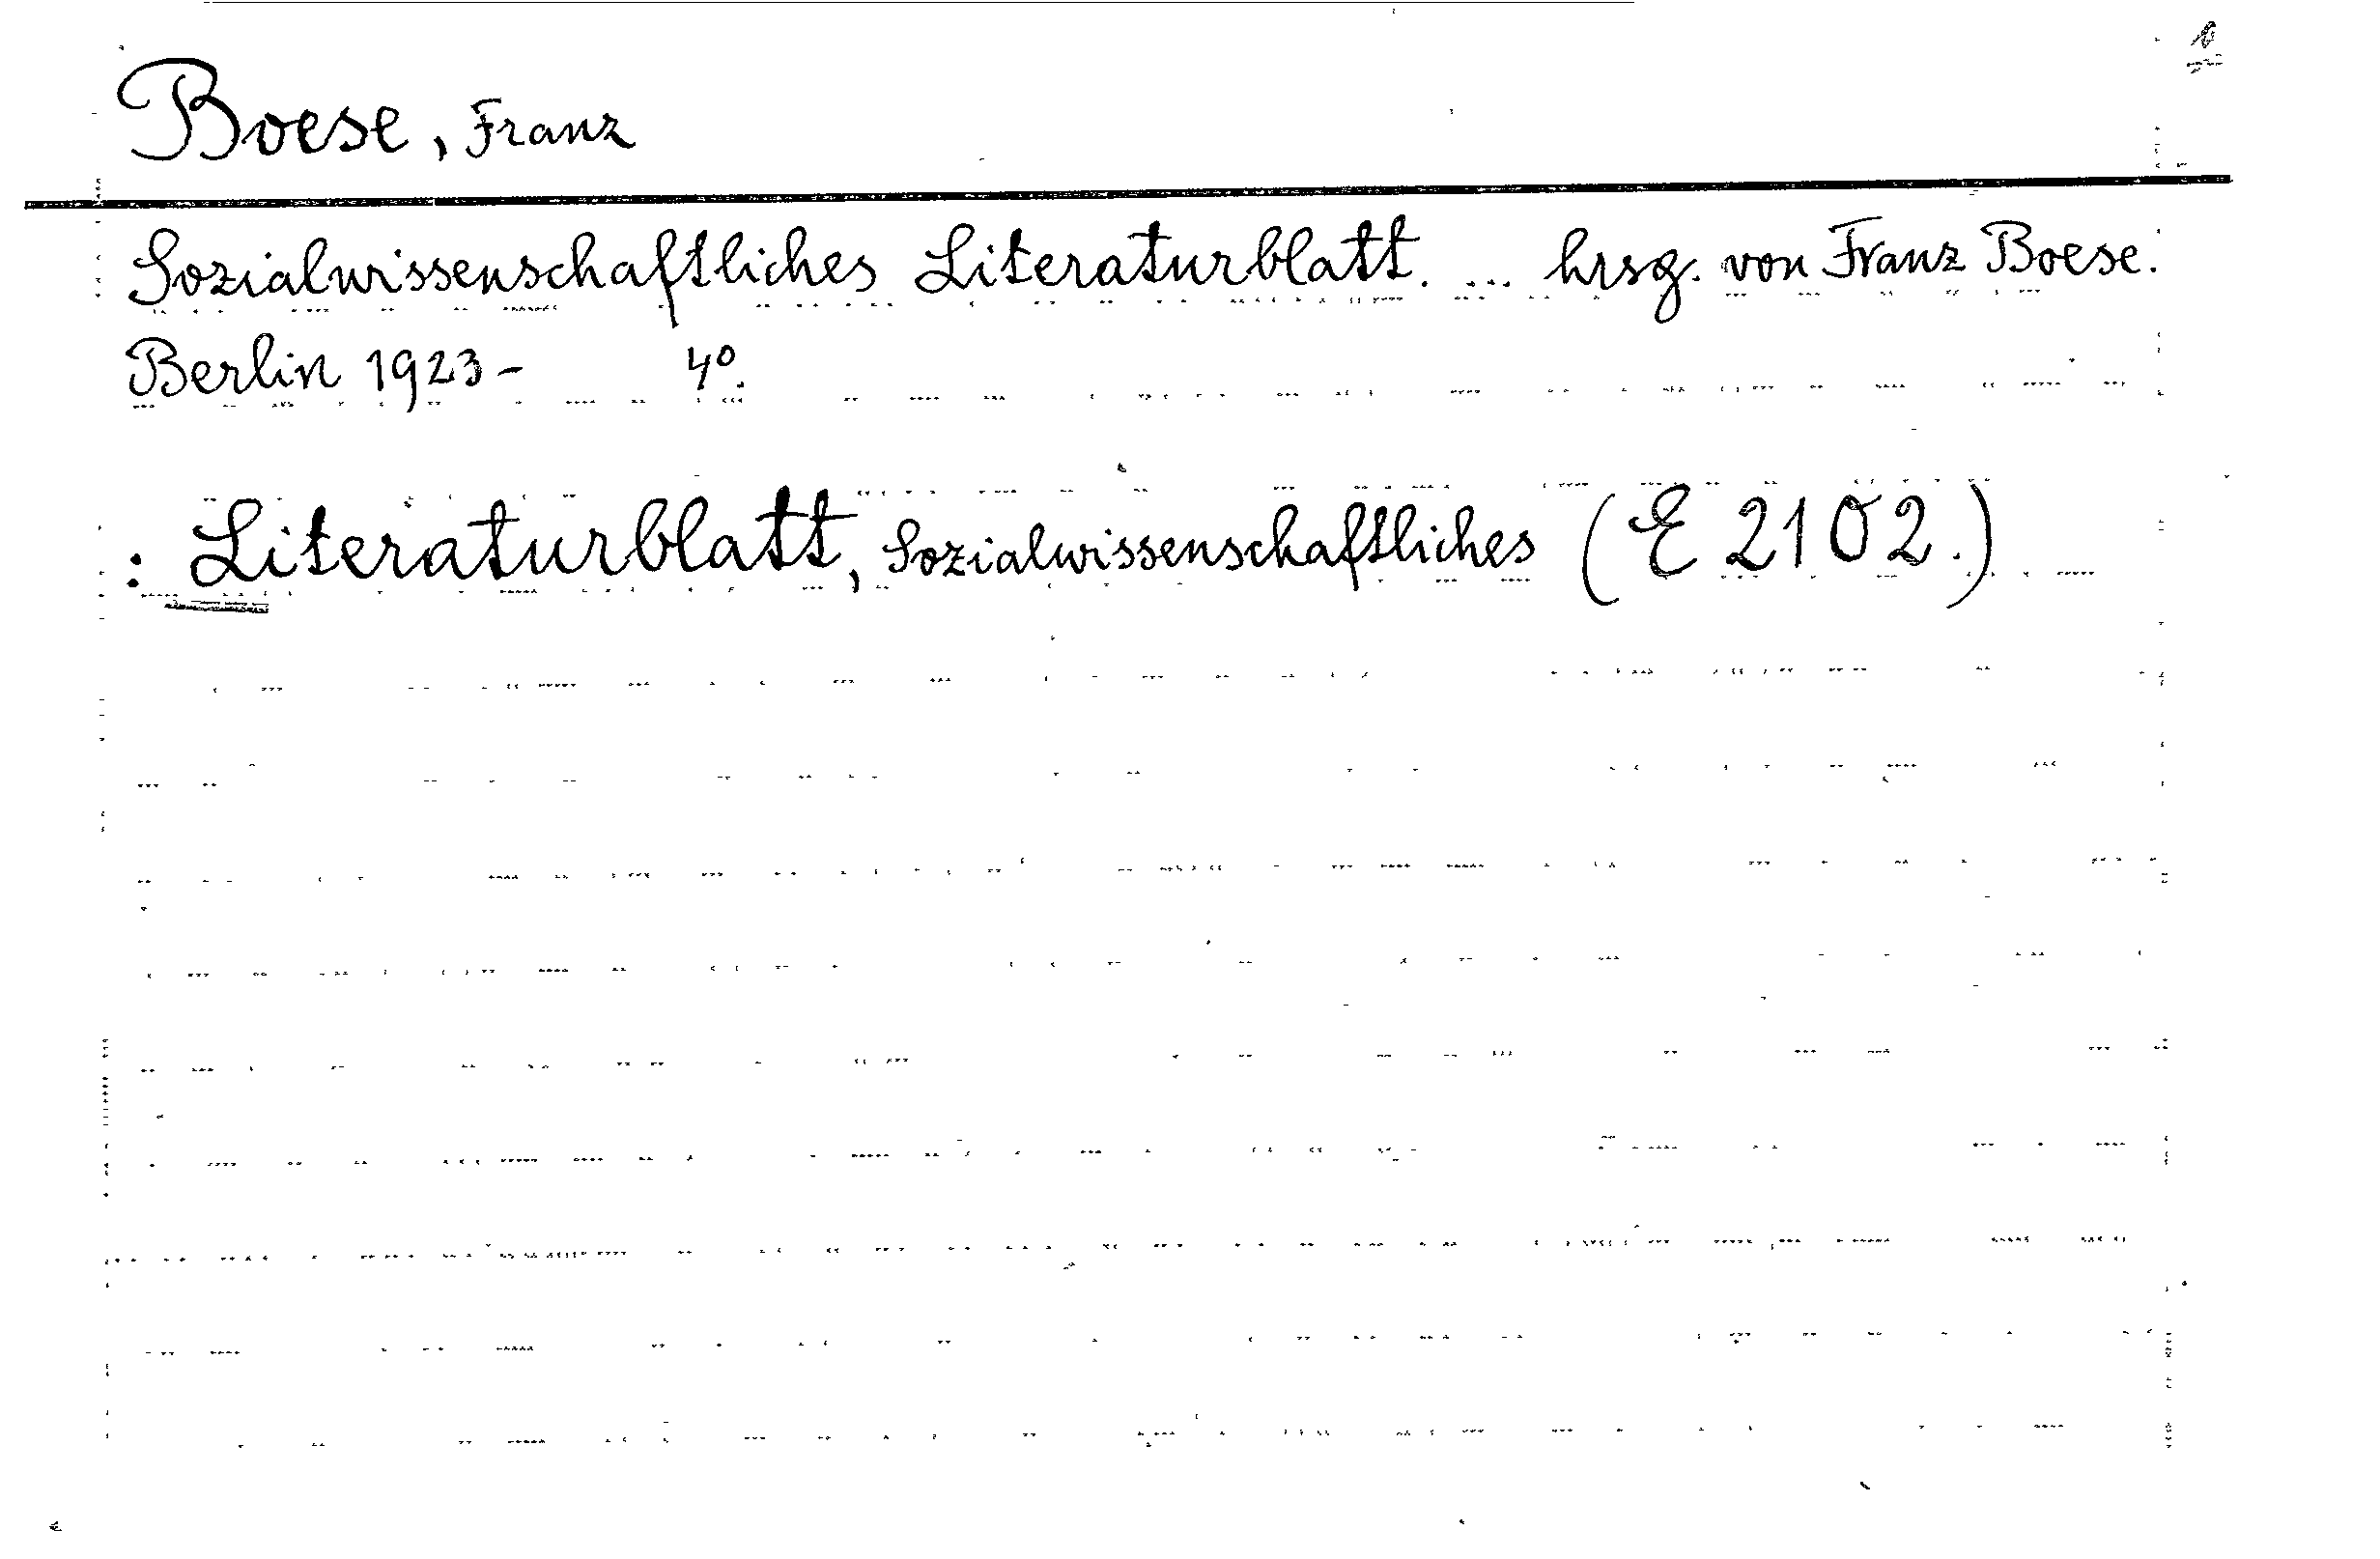 Boese, Franz
Sozialwissenschaftliches Literaturblatt. ... hrsg. von Franz Boese.
Berlin 1923- 4º.
: Literaturblatt, Sozialwissenschaftliches (E 2102.)